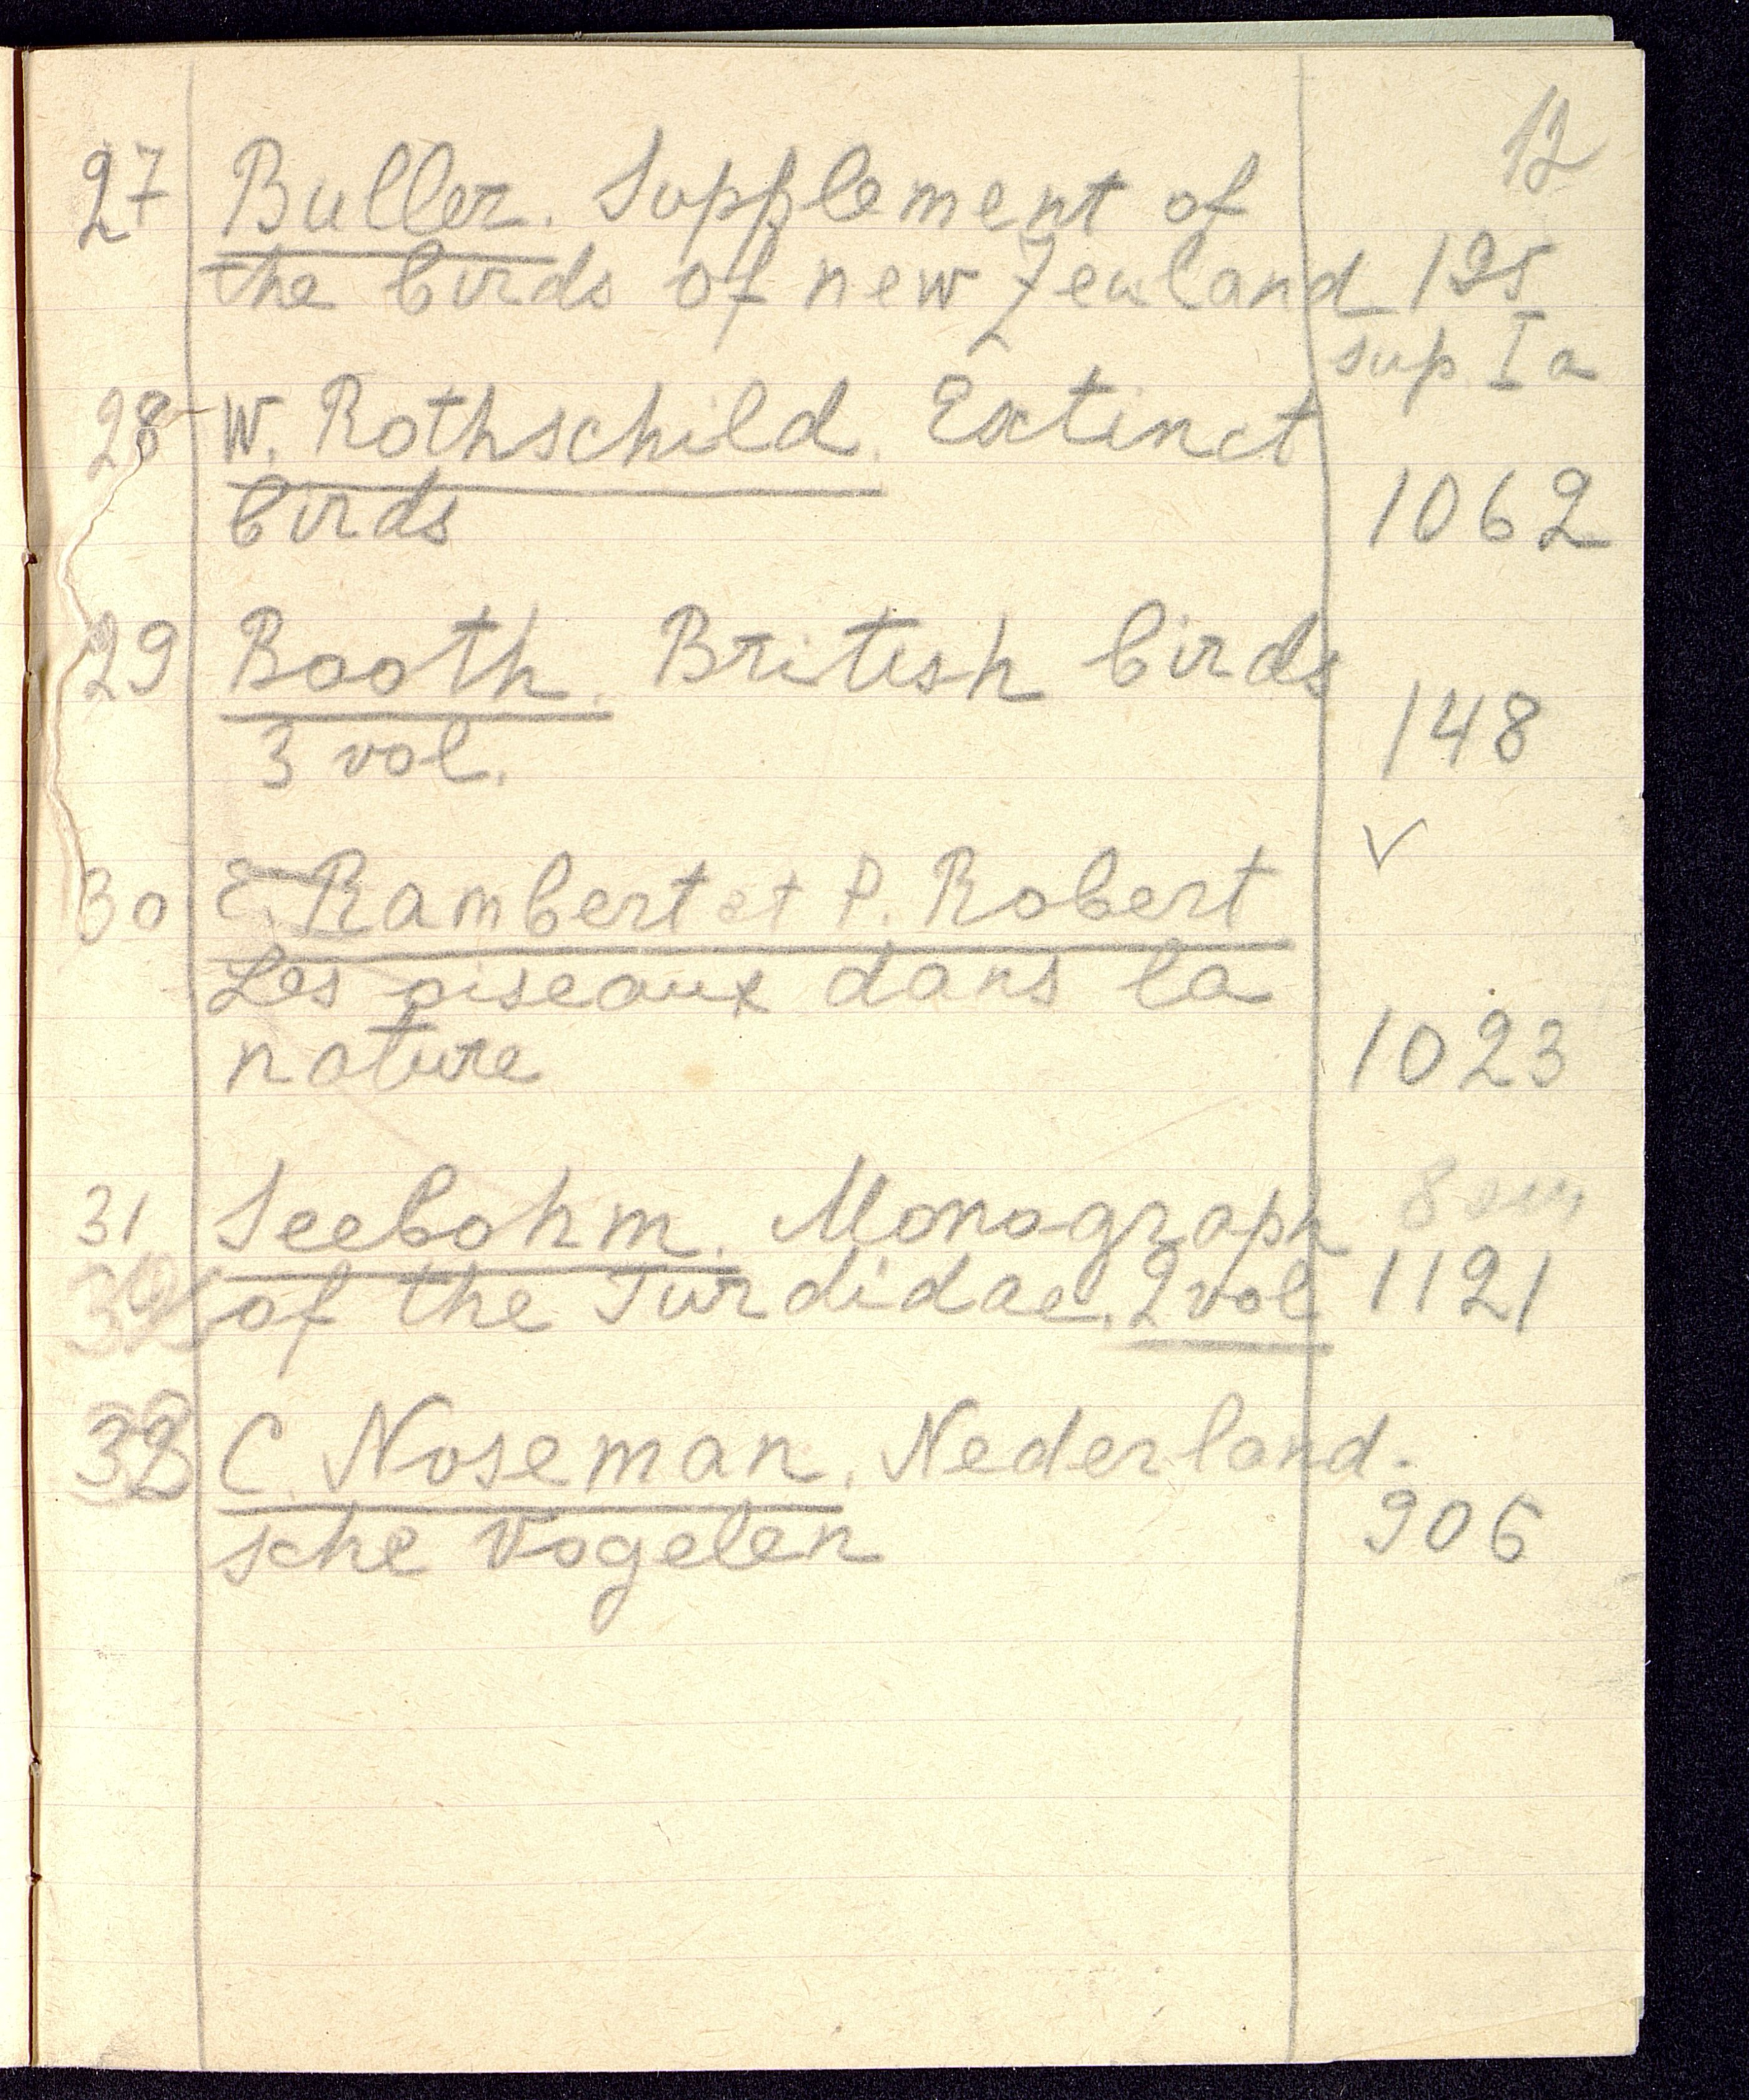 12
27 Buller. Supplement of
the birds of new Zealand 195
sup. I a
28 W. Rothschild. Extinct
birds 1062
29 Booth. British birds
3 vol. 148
30 E. Rambert et P. Robert
Les oiseaux dans la
nature 1023
31 Seebohm. Monograph
of the Turdidae. 2 vol 1121
32 C. Noseman. Nederland-
sche Vogelen 906